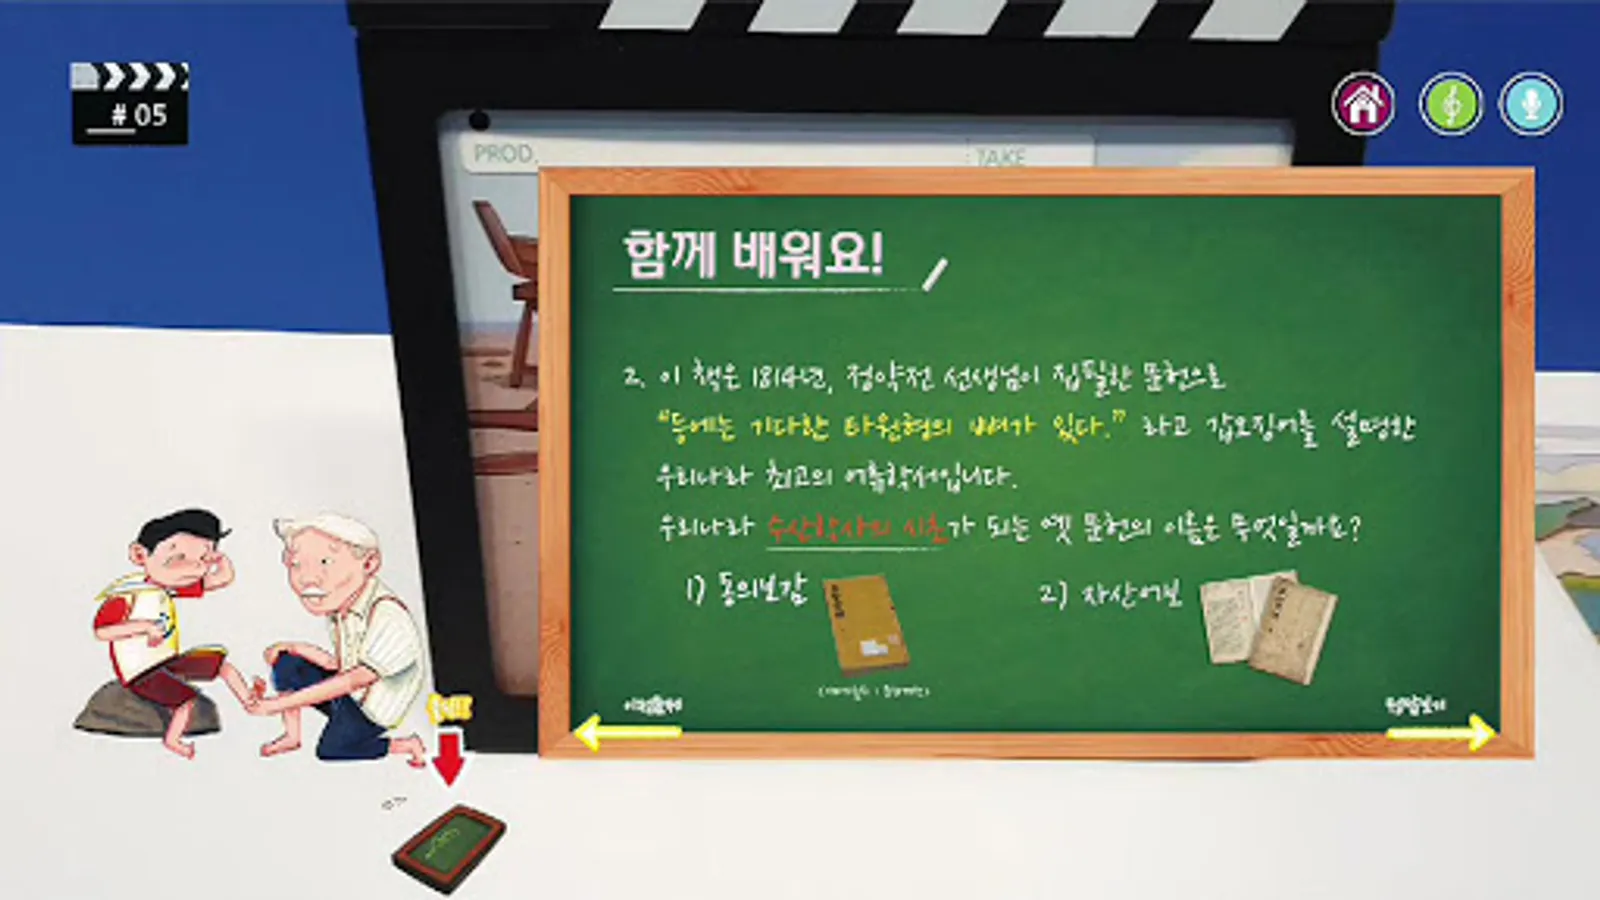 # 05
PROD.
TAKE
함께 배워요!
2. 이 책은 1814년, 정약전 선생님이 집필한 문헌으로
"등에는 기다란 타원형의 뼈가 있다." 라고 갑오징어를 설명한
우리나라 최고의 어류학서입니다.
우리나라 수산학사의 시초가 되는 옛 문헌의 이름은 무엇일까요?
1) 동의보감
2) 자산어보